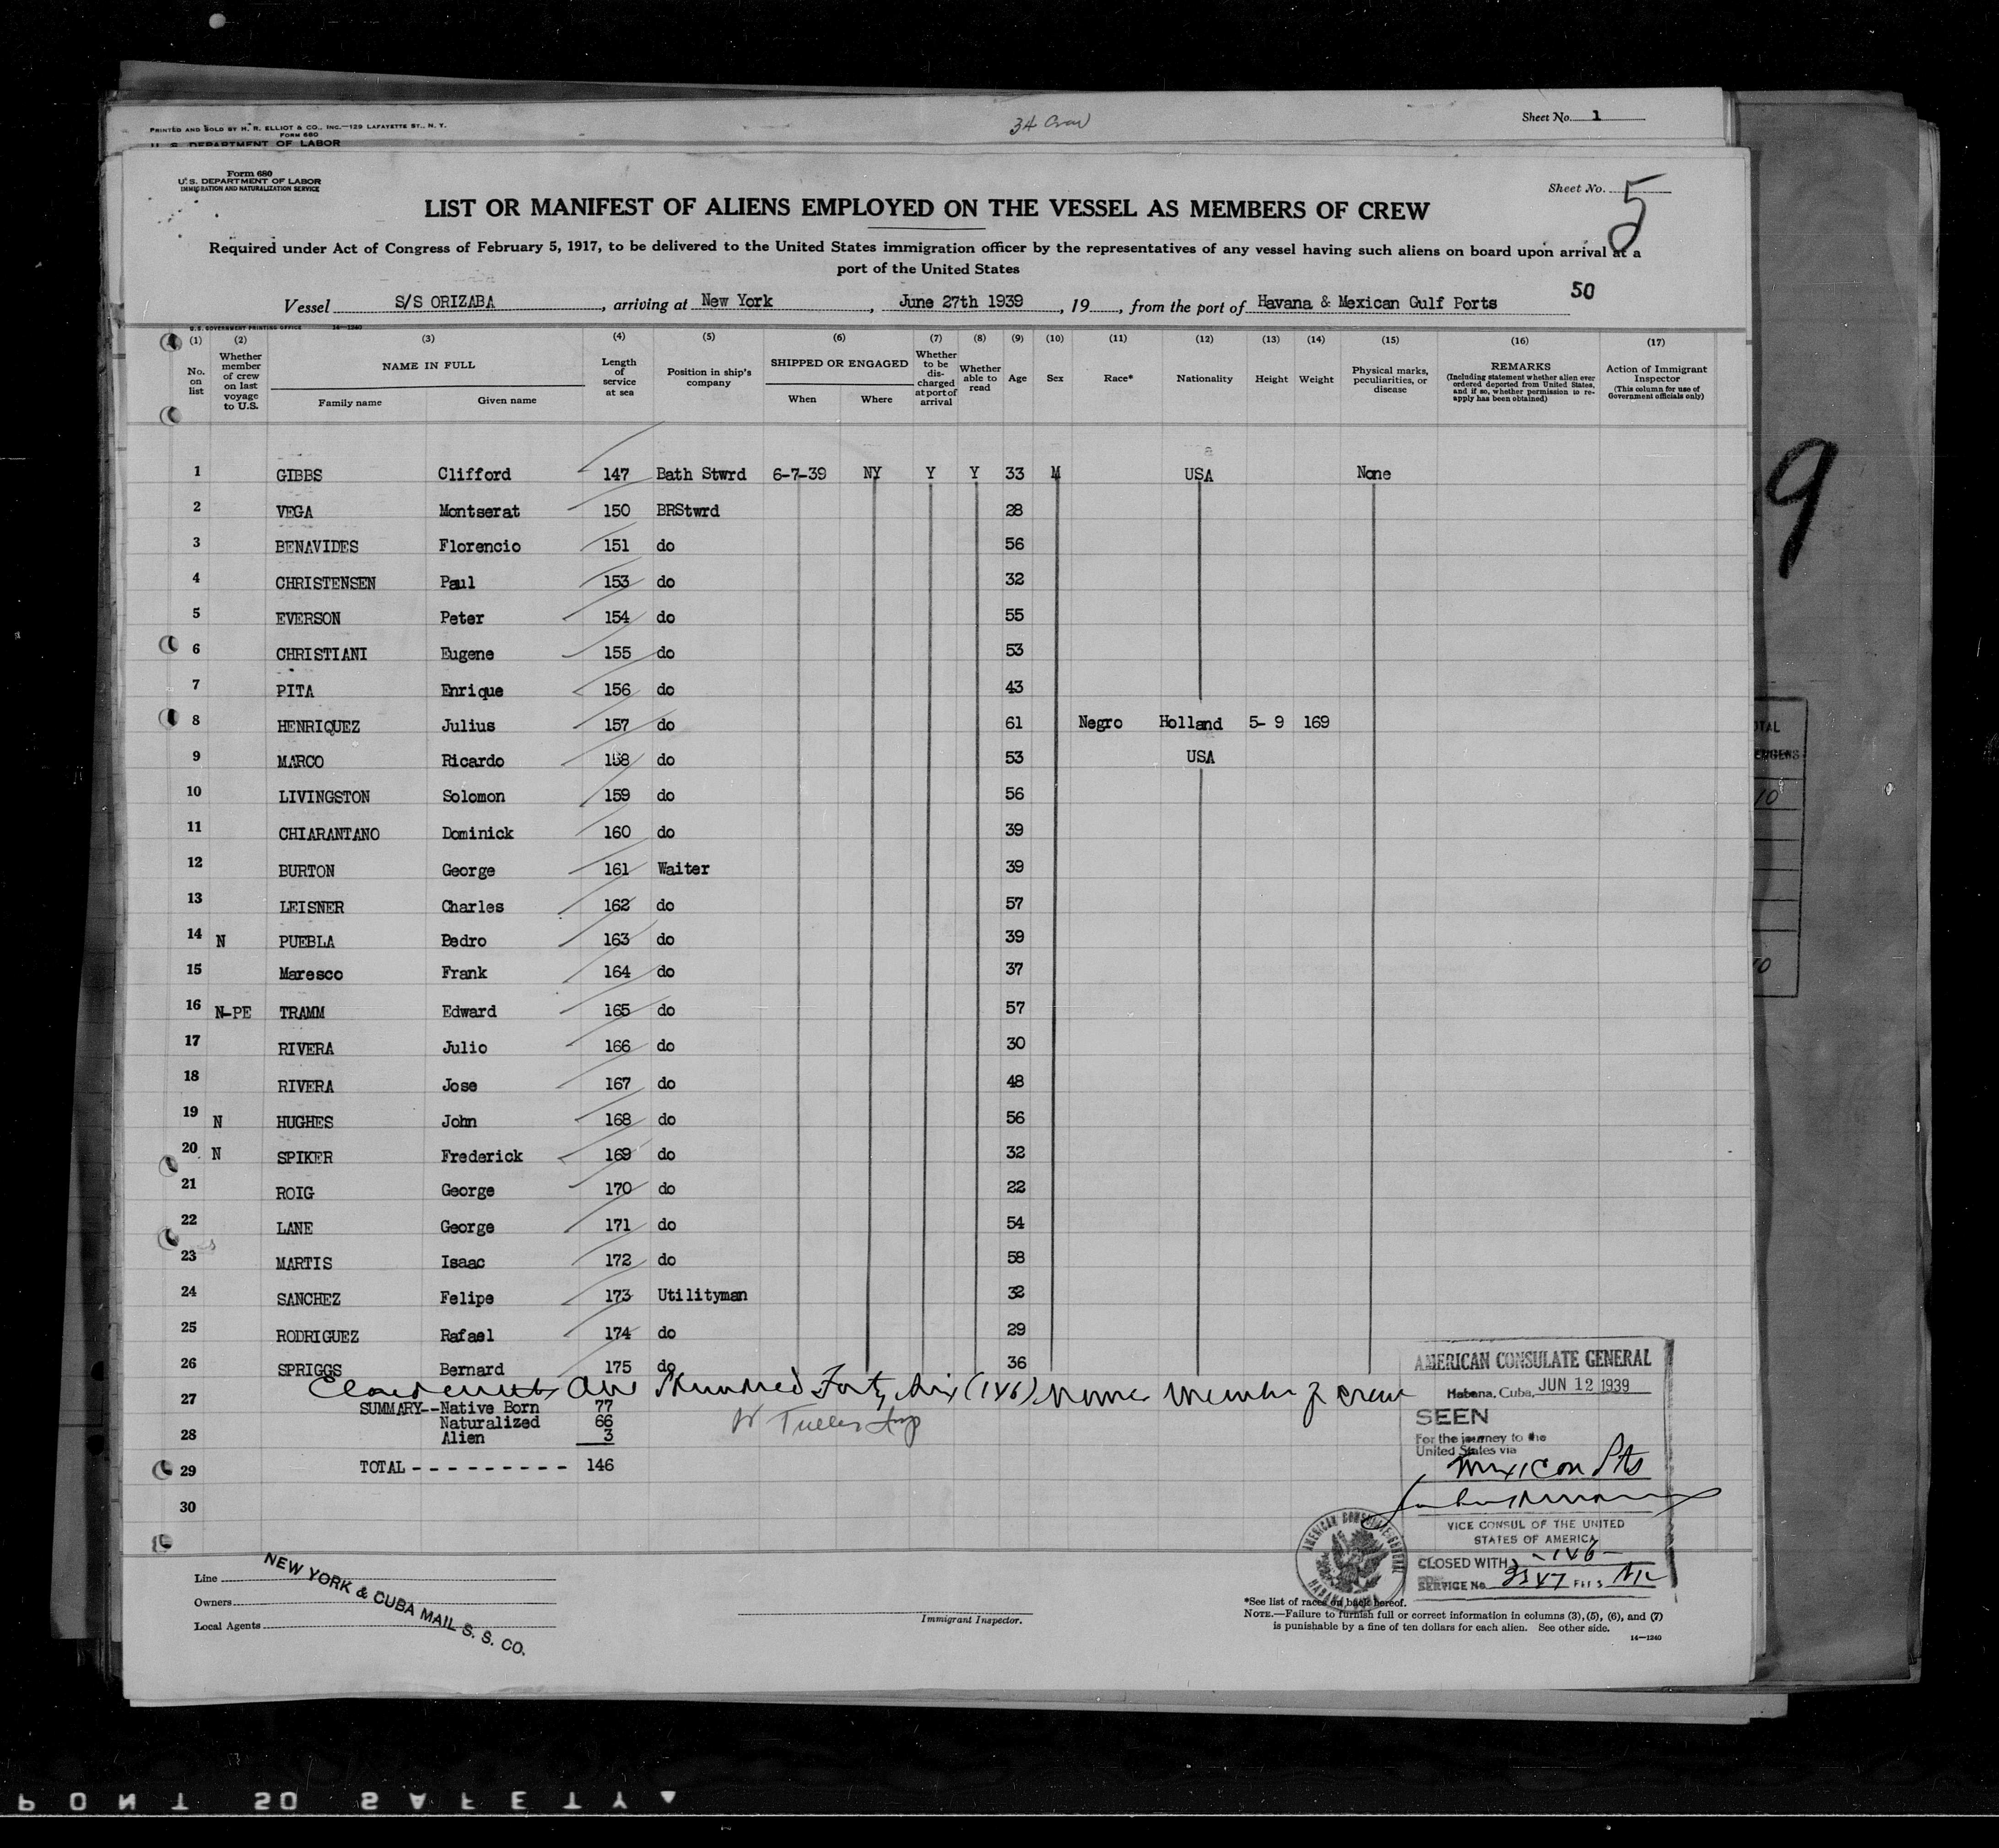 PRINTED AND SOLD BY H. R. ELLIOT & CO., INC.—129 LAFAYETTE ST., N. Y.
FORM 680
U. S. DEPARTMENT OF LABOR
34 Crew
Sheet No. 1
Form 680
U. S. DEPARTMENT OF LABOR
IMMIGRATION AND NATURALIZATION SERVICE
Sheet No. 5
LIST OR MANIFEST OF ALIENS EMPLOYED ON THE VESSEL AS MEMBERS OF CREW
Required under Act of Congress of February 5, 1917, to be delivered to the United States immigration officer by the representatives of any vessel having such aliens on board upon arrival at a
port of the United States
50
Vessel S/S ORIZABA, arriving at New York, June 27th 1939, 19, from the port of Havana & Mexican Gulf Ports
U. S. GOVERNMENT PRINTING OFFICE 14—1240
(1) (2) (3) (4) (5) (6) (7) (8) (9) (10) (11) (12) (13) (14) (15) (16) (17)
No. on list
Whether member of crew on last voyage to U.S.
NAME IN FULL
Family name
Given name
Length of service at sea
Position in ship's company
SHIPPED OR ENGAGED
When
Where
Whether to be discharged at port of arrival
Whether able to read
Age
Sex
Race*
Nationality
Height
Weight
Physical marks, peculiarities, or disease
REMARKS
(Including statement whether alien ever ordered deported from United States, and if so, whether permission to reapply has been obtained)
Action of Immigrant Inspector
(This column for use of Government officials only)
1 GIBBS Clifford 147 Bath Stwrd 6-7-39 NY Y Y 33 M USA None
2 VEGA Montserat 150 BRStwrd 28
3 BENAVIDES Florencio 151 do 56
4 CHRISTENSEN Paul 153 do 32
5 EVERSON Peter 154 do 55
6 CHRISTIANI Eugene 155 do 53
7 PITA Enrique 156 do 43
8 HENRIQUEZ Julius 157 do 61 Negro Holland 5- 9 169
9 MARCO Ricardo 158 do 53 USA
10 LIVINGSTON Solomon 159 do 56
11 CHIARANTANO Dominick 160 do 39
12 BURTON George 161 Waiter 39
13 LEISNER Charles 162 do 57
14 N PUEBLA Pedro 163 do 39
15 Maresco Frank 164 do 37
16 N-PE TRAMM Edward 165 do 57
17 RIVERA Julio 166 do 30
18 RIVERA Jose 167 do 48
19 N HUGHES John 168 do 56
20 N SPIKER Frederick 169 do 32
21 ROIG George 170 do 22
22 LANE George 171 do 54
23 MARTIS Isaac 172 do 58
24 SANCHEZ Felipe 173 Utilityman 32
25 RODRIGUEZ Rafael 174 do 29
26 SPRIGGS Bernard 175 do 36
One Hundred Forty Six (146) names members of crew
27
SUMMARY--Native Born 77
Naturalized 66
28
Alien 3
29
TOTAL - - - - - - - - - 146
30
AMERICAN CONSULATE GENERAL
Habana, Cuba, JUN 12 1939
SEEN
For the journey to the
United States via
Mexican Pts
VICE CONSUL OF THE UNITED
STATES OF AMERICA
CLOSED WITH -146-
SERVICE No.
AMERICAN CONSULATE GENERAL
HABANA, CUBA
Line
Owners
Local Agents
NEW YORK & CUBA MAIL S. S. CO.
Immigrant Inspector.
*See list of races on back hereof.
NOTE.—Failure to furnish full or correct information in columns (3), (5), (6), and (7)
is punishable by a fine of ten dollars for each alien. See other side.
14—1240
9
10
PONT 50 SAFETY